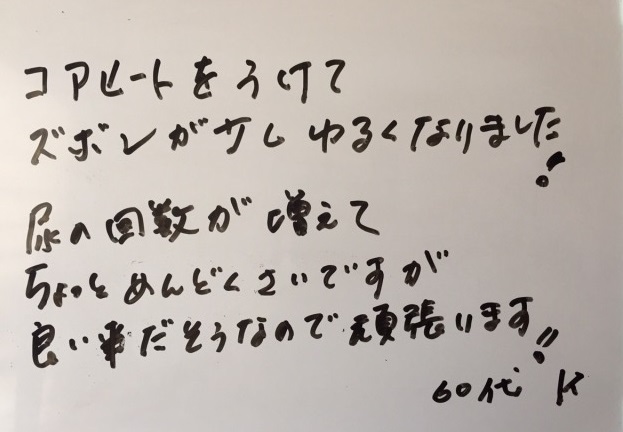 コアヒートをうけて
ズボンが少しゆるくなりました!
尿の回数が増えて
ちょっとめんどくさいですが
良い事だそうなので頑張います!!
60代 K